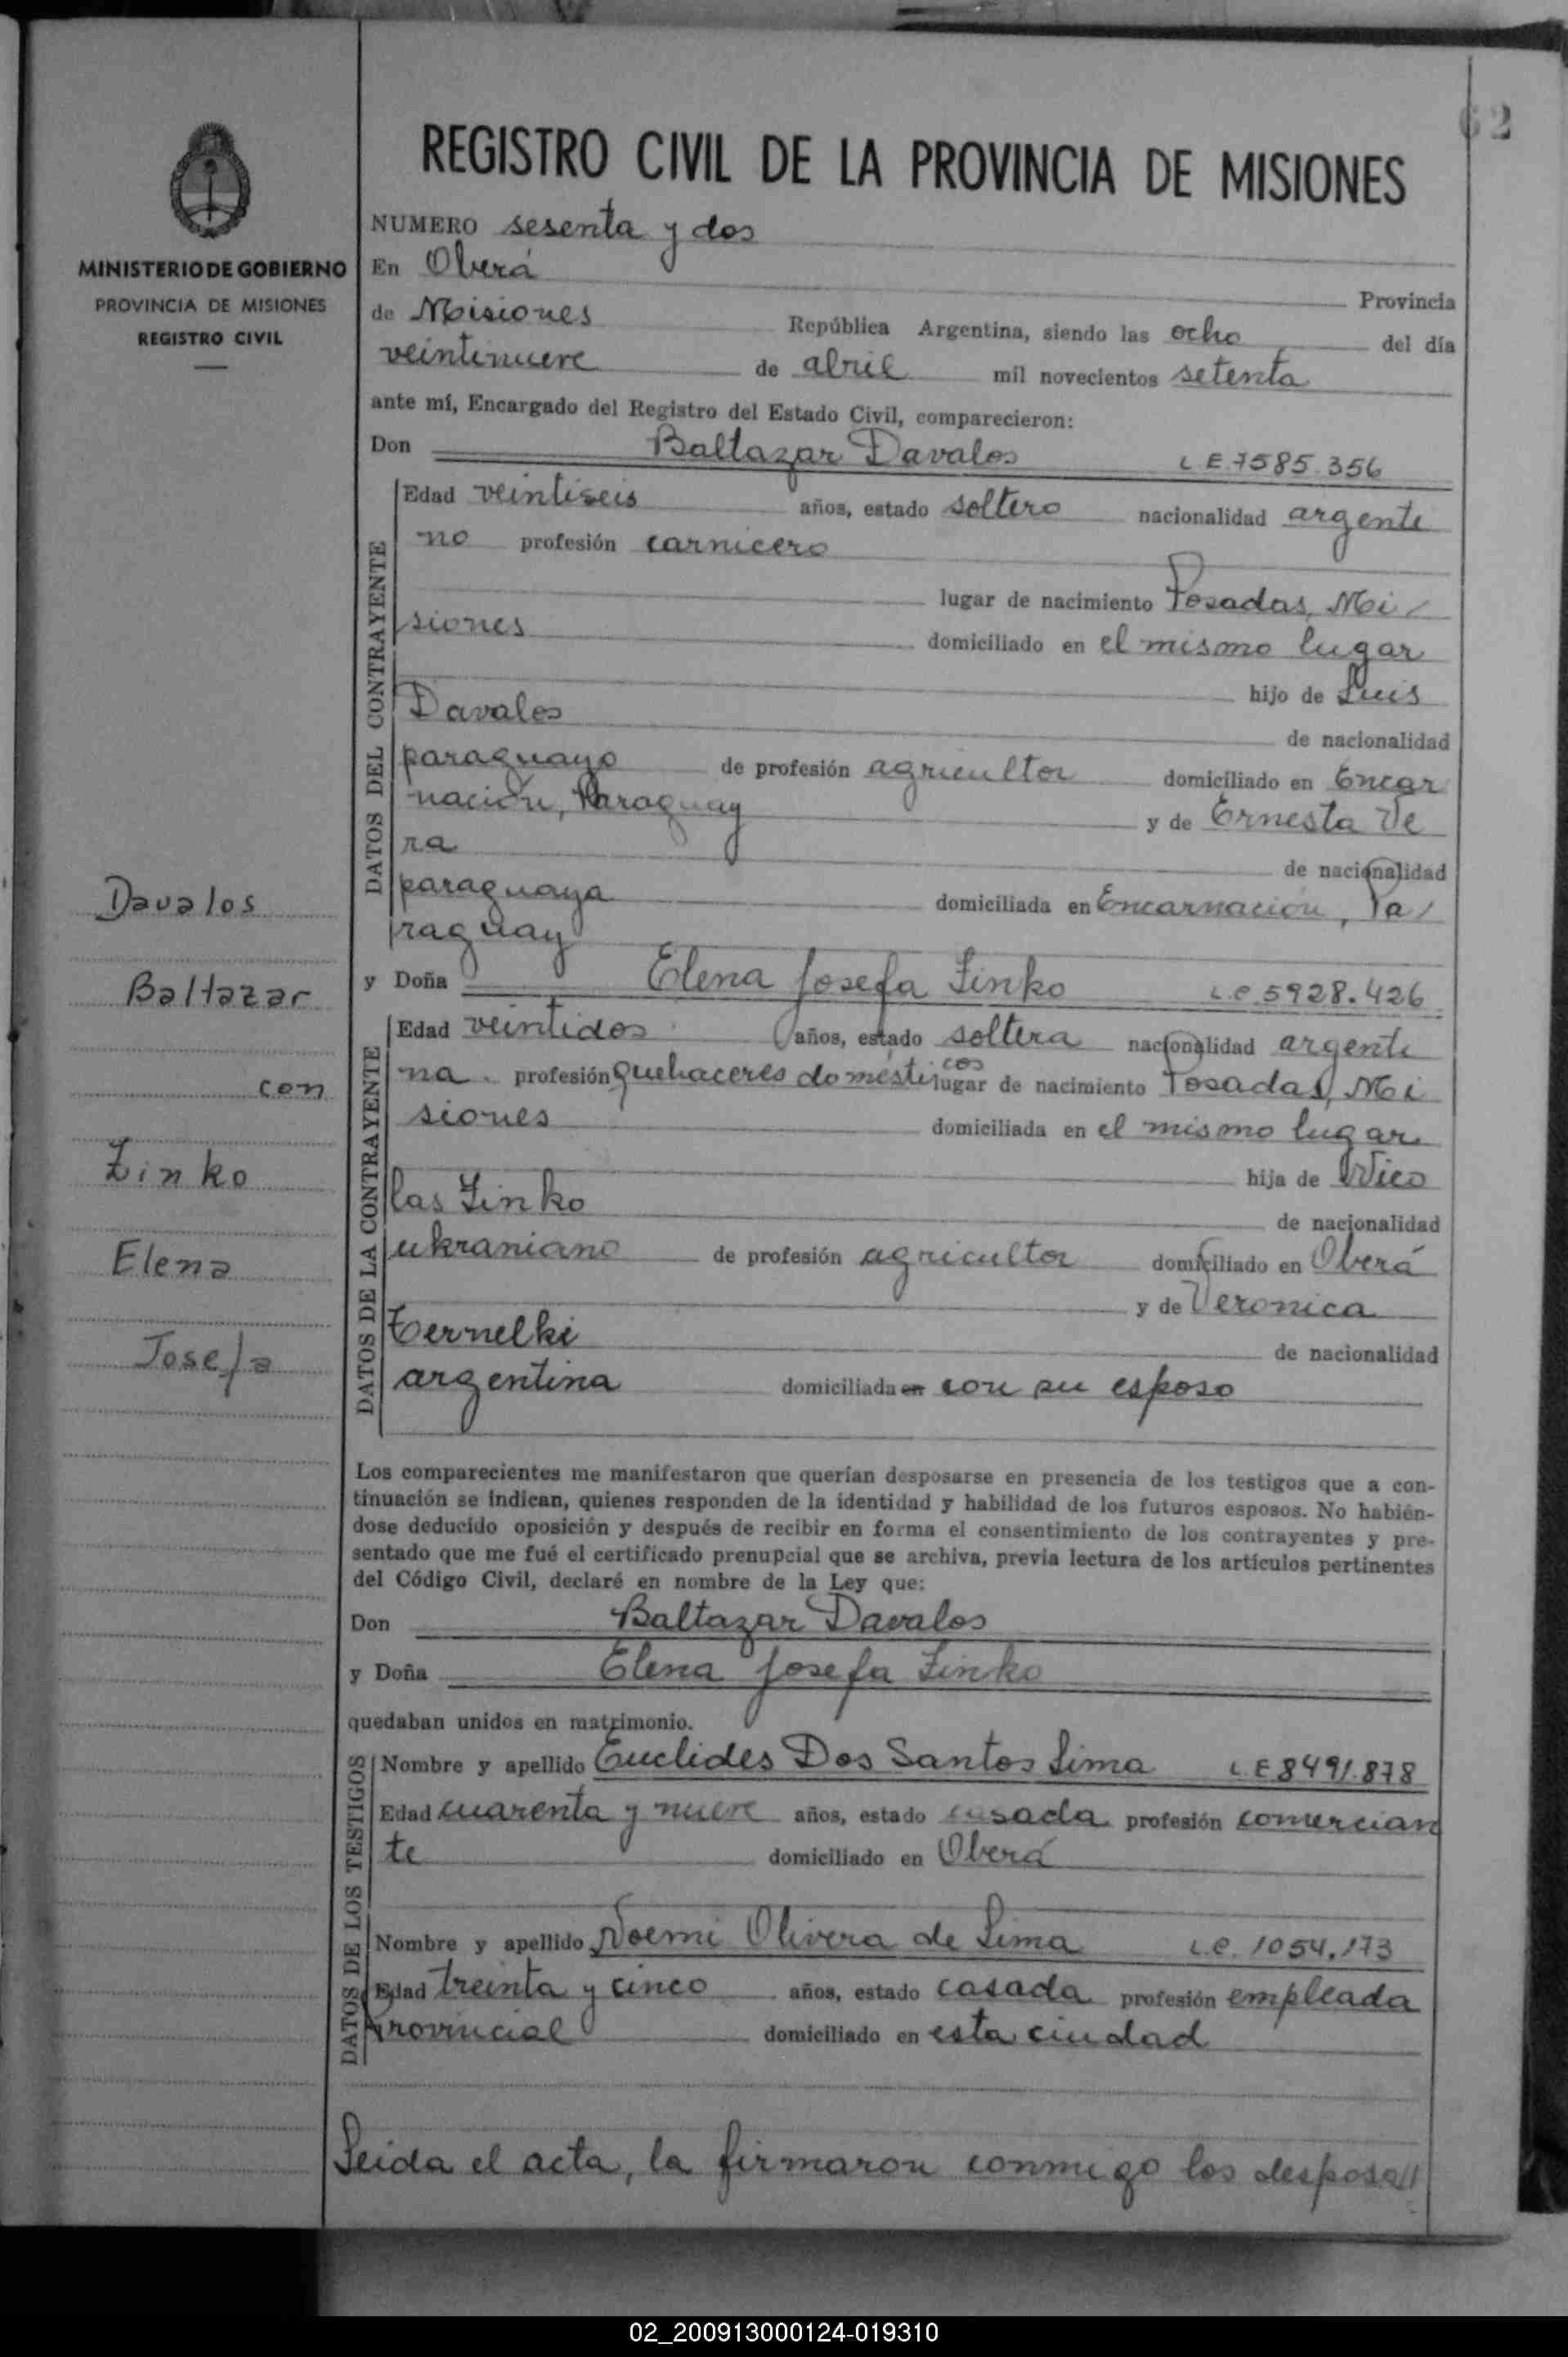 62
REGISTRO CIVIL DE LA PROVINCIA DE MISIONES
MINISTERIO DE GOBIERNO
PROVINCIA DE MISIONES
REGISTRO CIVIL
Davalos
Baltazar
con
Zinko
Elena
Josefa
NUMERO sesenta y dos
En Oberá Provincia
de Misiones República Argentina, siendo las ocho del día
veintinueve de abril mil novecientos setenta
ante mí, Encargado del Registro del Estado Civil, comparecieron:
Don Baltazar Davalos L.E.7585.356
DATOS DEL CONTRAYENTE
Edad veintiseis años, estado soltero nacionalidad argenti
no profesión carnicero
lugar de nacimiento Posadas, Mi/
siones domiciliado en el mismo lugar
hijo de Luis
Davalos de nacionalidad
paraguayo de profesión agricultor domiciliado en Encar
nación, Paraguay y de Ernesta Ve
ra de nacionalidad
paraguaya domiciliada en Encarnación, Pa/
raguay
y Doña Elena Josefa Zinko L.C.5928.426
DATOS DE LA CONTRAYENTE
Edad veintidos años, estado soltera nacionalidad argenti
na. profesión quehaceres domésticos lugar de nacimiento Posadas, Mi
siones domiciliada en el mismo lugar
hija de Nico
las Zinko de nacionalidad
ukraniano de profesión agricultor domiciliado en Oberá
y de Veronica
Zernelki de nacionalidad
argentina domiciliada en con su esposo
Los comparecientes me manifestaron que querían desposarse en presencia de los testigos que a con-
tinuación se indican, quienes responden de la identidad y habilidad de los futuros esposos. No habién-
dose deducido oposición y después de recibir en forma el consentimiento de los contrayentes y pre-
sentado que me fué el certificado prenupcial que se archiva, previa lectura de los artículos pertinentes
del Código Civil, declaré en nombre de la Ley que:
Don Baltazar Davalos
y Doña Elena Josefa Zinko
quedaban unidos en matrimonio.
DATOS DE LOS TESTIGOS
Nombre y apellido Euclides Dos Santos Lima L.E 8491.878
Edad cuarenta y nueve años, estado casada profesión comercian
te domiciliado en Oberá
Nombre y apellido Noemi Olivera de Lima L.C. 1054.173
Edad treinta y cinco años, estado casada profesión empleada
Provincial domiciliado en esta ciudad
Leida el acta, la firmaron conmigo los desposa//
02_200913000124-019310